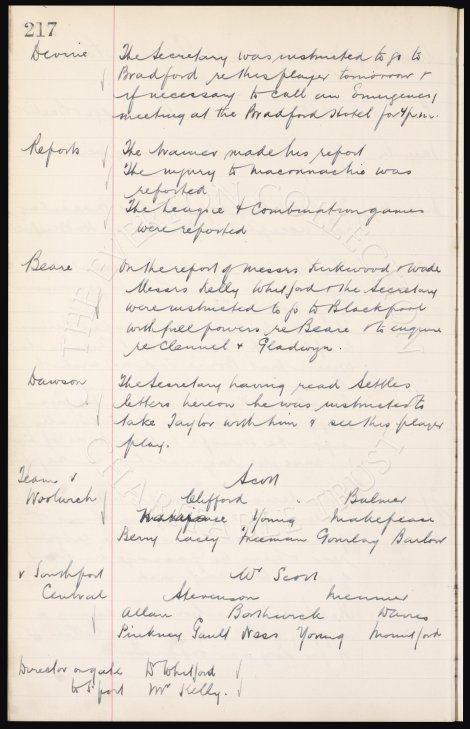 217
Devine The Secretary was instructed to go to
Bradford re this player tomorrow &
if necessary to call an Emergency
meeting at the Bradford Hotel for 4 p.m.
Reports The trainer made his report
The injury to Maconnachie was
reported
The League & Combination games
were reported
Beare On the report of Messrs Kirkwood & Wade
Messrs Kelly Whitford & the Secretary
were instructed to go to Blackpool
with full powers re Beare & to enquire
re Clennel & Gladwyn.
Dawson The Secretary having read Settles
letters hereon he was instructed to
take Taylor with him & see this player
play.
Team v Scott
Woolwich Clifford . Balmer
Young Makepeace
Berry Lacey Freeman Gourlay Barlow
v Southport Mr Scott
Central Stevenson Meunier
Allan Borthwick Davies
Pinkney Gault Ness Young Mountford
Director on gate Dr Whitford
to S'port Mr Kelly.
THE EVERTON COLLECTION
CHARITABLE TRUST